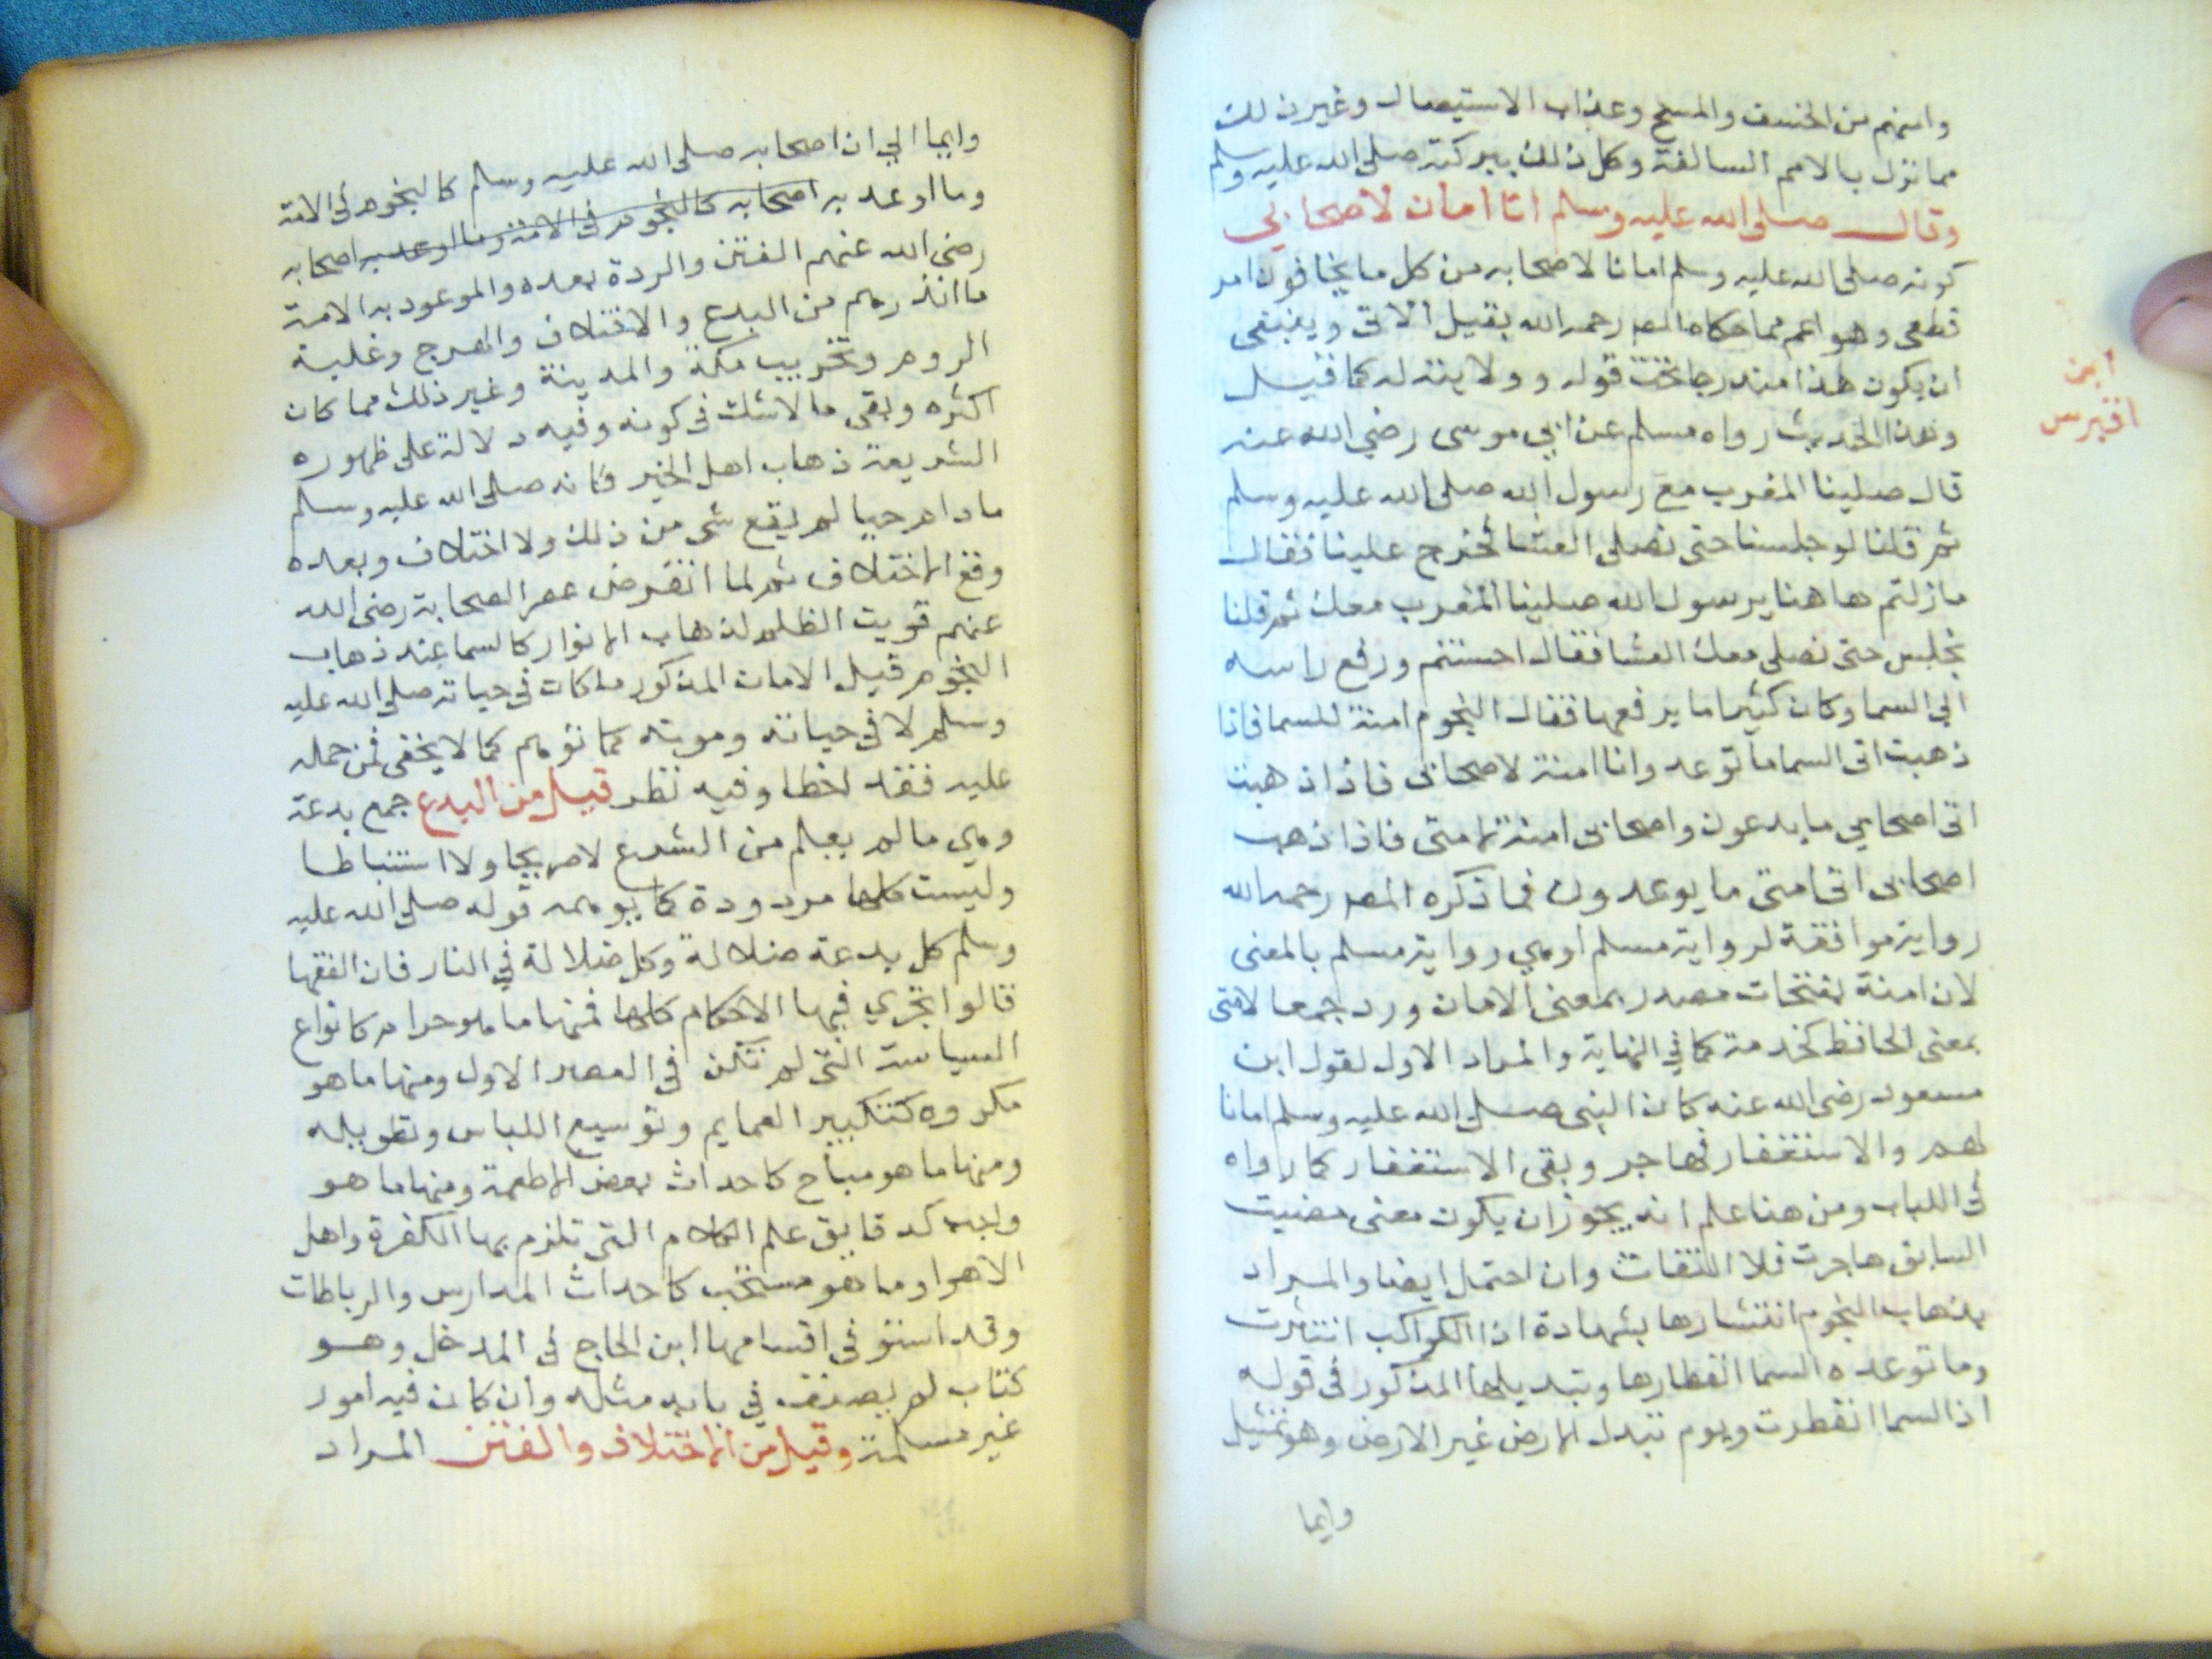 وامنهم من الخسف والمسخ وعذاب الاستيصال وغير ذلك
مما نزل بالامم السالفة وكل ذلك ببركته صلى الله عليه وسلم
وقال صلى الله عليه وسلم انا امان لاصحابي
كونه صلى الله عليه وسلم امانا لاصحابه من كل ما يخافون امر
قطعي وهو اعم مما حكاه المص رحمه الله بقيل الاتي وينبغي
ان يكون هذا مندرجا تحت قوله وولايته له كما قيل
وهذا الحديث رواه مسلم عن ابي موسى رضي الله عنه
قال صلينا المغرب مع رسول الله صلى الله عليه وسلم
ثم قلنا لو جلسنا حتى نصلي العشا فخرج علينا فقال
ما زلتم هاهنا يرسول الله صلينا المغرب معك ثم قلنا
نجلس حتى نصلي معك العشا فقال احسنتم ورفع راسه
الي السما وكان كثيرا ما يرفعها فقال النجوم امنة للسما فاذا
ذهبت اتى السما ما توعد وانا امنة لاصحابي فاذا ذهبت
اتى اصحابي ما يدعون واصحابي امنة لامتي فاذا ذهب
اصحابي اتى امتي ما يوعدون فما ذكره المص رحمه الله
رواية موافقة لرواية مسلم او هي رواية مسلم بالمعنى
لان امنة بفتحات مصدر بمعنى الامان ورد جمعا لامتي
بمعنى الحافظ كخدمة كما في النهاية والمراد الاول لقول ابن
مسعود رضي الله عنه كان النبي صلى الله عليه وسلم امانا
لهم والاستغفار فهاجر وبقى الاستغفار كما رواه
في اللباب ومن هنا علم انه يجوز ان يكون معنى مضيت
السابق هاجرت فلا التفات وان احتمل ايضا والمراد
بذهاب النجوم انتشارها بشهادة اذا الكواكب انتثرت
وما توعده السما انفطارها وتبديلها المذكور في قوله
اذا السما انفطرت ويوم تبدل الارض غير الارض وهو تمثيل
وايما
ابن
اقبرس
وايما الي ان اصحابه صلى الله عليه وسلم كالنجوم في الامة
وما اوعد به اصحابه كالنجوم في الامة وما اوعد به اصحابه
رضى الله عنهم الفتن والردة بعده والموعود به الامة
ما انذرهم من البدع والاختلاف والهرج وغلبة
الروم وتخريب مكة والمدينة وغير ذلك مما كان
اكثره وبقى ما لا شك في كونه وفيه دلالة على ظهوره
الشريعة ذهاب اهل الخير فانه صلى الله عليه وسلم
ما دام حيا لم يقع شي من ذلك ولا اختلاف وبعده
وقع الاختلاف ثم لما انقرض عصر الصحابة رضى الله
عنهم قويت الظلم لذهاب الانوار كالسما عند ذهاب
النجوم قيل الامان المذكور ما كان في حياته صلى الله عليه
وسلم لا في حياته وموته كما توهم كما لا يخفى فمن حمله
عليه فقد اخطا وفيه نظر قيل من البدع جمع بدعة
وهي ما لم يعلم من الشرع لا صريحا ولا استنباطا
وليست كلها مردودة كما يوهمه قوله صلى الله عليه
وسلم كل بدعة ضلالة وكل ضلالة في النار فان الفقها
قالوا تجري فيها الاحكام كلها فمنها ما هو حرام كانواع
السياسة التي لم تكن في العصر الاول ومنها ما هو
مكروه كتكبير العمايم وتوسيع اللباس وتطويله
ومنها ما هو مباح كاحداث بعض الاطعمة ومنها ما هو
واجب كدقايق علم الكلام التي تلزم بها الكفرة واهل
الاهوا وما هو مستحب كاحداث المدارس والرباطات
وقد استوفى اقسامها ابن الحاج في المدخل وهو
كتاب لم يصنف في بابه مثله وان كان فيه امور
غير مسلمة وقيل من الاختلاف والفتن المراد